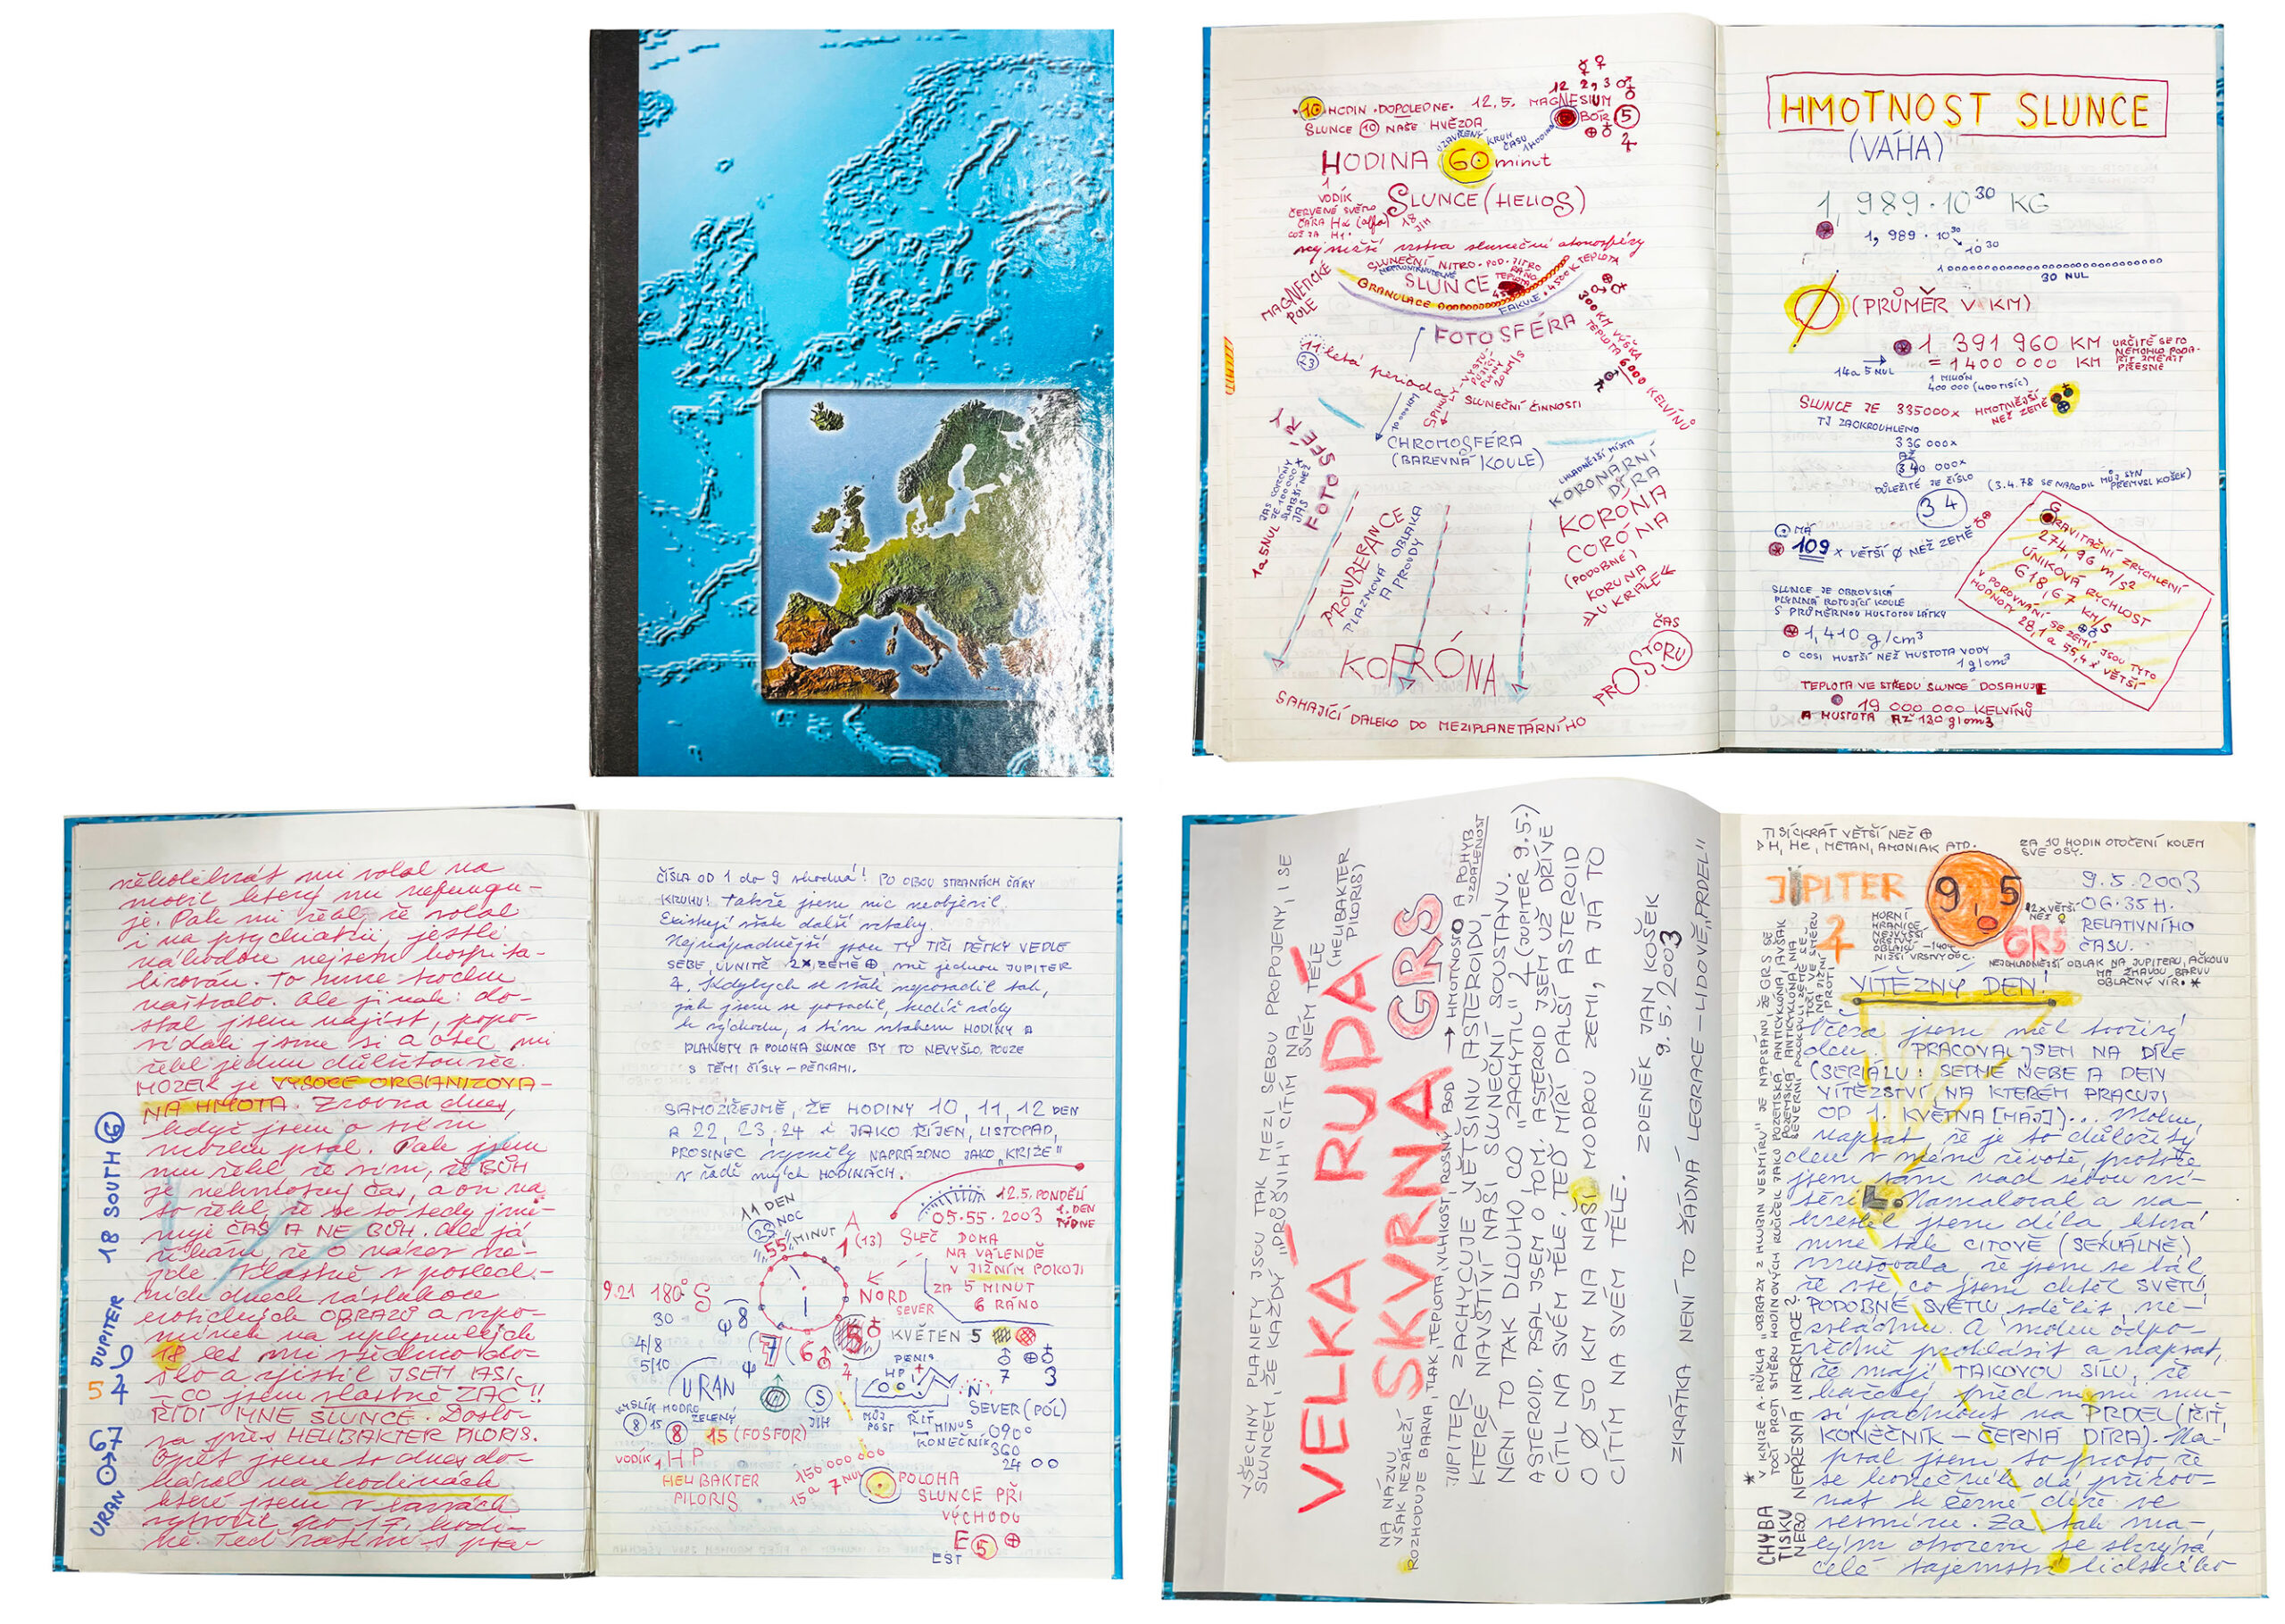 10 HODIN · DOPOLEDNE · 12.5. MAGNESIUM
12 2, 3
SLUNCE 10 NAŠE HVĚZDA
BÓR 5
UZAVŘENÝ KRUH ČASU 1 HODINA
HODINA 60 minut
1
VODÍK
SLUNCE (HELIOS)
ČERVENÉ SVĚTLO
ČÁRA Hα (alfa) 18
JIH
nejnižší vrstva sluneční atmosféry
SLUNEČNÍ NITRO · POD · JITRO
RÁNO
MAGNETICKÉ
POLE
SLUNCE
TEPLOTA
GRANULACE
FAKULE · 4500 K TEPLOTA
FOTOSFÉRA
300 KM VÝŠKA
TEPLOTA 6000 KELVÍNŮ
11 letá perioda
23
SLUNEČNÍ ČINNOSTI
CHROMOSFÉRA
(BAREVNÁ KOULE)
JAS KORÓNY
JE 100000 X
SLABŠÍ NEŽ
JAS
FOTOSFÉRY
1 a 5 NUL
CHLADNĚJŠÍ MÍSTA
KORONÁRNÍ
DÍRA
KORÓNA
CORÓNA
(PODOBNĚ)
KORUNA
U KRÁLE
PROTUBERANCE
PLAZMOVÁ OBLAKA
A PROUDY
KORÓNA
ČAS
PROSTORU
SAHAJÍCÍ DALEKO DO MEZIPLANETÁRNÍHO
HMOTNOST SLUNCE
(VÁHA)
1, 989 · 10³⁰ KG
1, 989 · 10³⁰
10³⁰
30 NUL
Ø (PRŮMĚR V KM)
1 391 960 KM
URČITĚ SE TO
NEMOHLO PODA-
ŘIT ZMĚŘIT
PŘESNĚ
= 1 400 000 KM
14 a 5 NUL
1 MILIÓN
400 000 (400 TISÍC)
SLUNCE JE 335000x HMOTNĚJŠÍ
NEŽ ZEMĚ
TJ ZAOKROUHLENO
336 000x
AŽ
340 000x
DŮLEŽITÉ JE ČÍSLO
34
(3.4.78 SE NARODIL MŮJ SYN
PŘEMYSL KOŠEK)
MÁ
109 x VĚTŠÍ Ø NEŽ ZEMĚ
GRAVITAČNÍ ZRYCHLENÍ
274, 96 m/s²
ÚNIKOVÁ RYCHLOST
618, 67 KM/S
V POROVNÁNÍ SE ZEMÍ JSOU TYTO
HODNOTY 28,1 a 55,4 x VĚTŠÍ
SLUNCE JE OBROVSKÁ
PLYNNÁ ROTUJÍCÍ KOULE
S PRŮMĚRNOU HUSTOTOU LÁTKY
1,410 g/cm³
O COSI HUSTŠÍ NEŽ HUSTOTA VODY
1g/cm³
TEPLOTA VE STŘEDU SLUNCE DOSAHUJE
19 000 000 KELVÍNŮ
A HUSTOTA AŽ 130 g/cm3
několikrát mi volal na
mobil který mi nefungu-
je. Pak mi řekl, že volal
i na psychiatrii, jestli
náhodou nejsem hospita-
lizován. To mne trochu
naštvalo. Ale jinak: do-
stal jsem najíst, popo-
vídali jsme si a otec mi
řekl jednu důležitou věc.
MOZEK je VYSOCE ORGANIZOVA-
NÁ HMOTA. Zrovna dnes,
když jsem o svém
mozku psal. Pak jsem
mu řekl, že vím, že BŮH
je nehmotný čas, a on na
to řekl, že se to tedy jme-
nuje ČAS A NE BŮH. Ale já
říkám, že o název ne-
jde. Vlastně v posled-
ních dnech
erotických OBRAZŮ a vzpo-
mínek na uplynulých
18 let mi všechno do-
šlo a zjistil JSEM ASI,
– CO jsem vlastně ZAČ!!
ŘÍDÍ MNE SLUNCE. Doslo-
va přes HELIBAKTER PILORIS.
Opět jsem to dnes do-
kázal na hodinách
které jsem v barvách
vytvořil do 17. hodi-
ně. Teď
URAN 67 5 JUPITER 18 SOUTH
ČÍSLA OD 1 do 9 shodná! PO OBOU STRANÁCH ČÁRY
KRUHU! Takže jsem nic neobjevil.
Existují však další vztahy.
Nejnápadnější jsou TY TŘI PĚTKY VEDLE
SEBE, UVNITŘ 2X ZEMĚ, vně jednou JUPITER
4. Kdybych se však neposadil tak,
jak jsem se posadil, hledíc vždy
k východu, s tím vztahem HODINY A
PLANETY A POLOHA SLUNCE BY TO NEVYŠLO, POUZE
S TĚMI ČÍSLY – PĚTKAMI.
SAMOZŘEJMĚ, ŽE HODINY 10, 11, 12 DEN
A 22, 23, 24 i JAKO ŘÍJEN, LISTOPAD,
PROSINEC vyzněly NAPRÁZDNO JAKO „KŘÍŽE"
v řádě mých HODINÁCH.
11 DEN
23 NOC
„55" MINUT
12.5. PONDĚLÍ
05·55·2003 1. DEN
TÝDNE
A
1 (13)
SLEČ DOMA
NA VALENDĚ
V JIŽNÍM POKOJI
ZA 5 MINUT
6 RÁNO
K
NORD
SEVER
9.21 180° S
30
4/8
5/10
8
7 6 5
KVĚTEN 5
PENIS
HP
7 3
URAN
KYSLÍK MODRO
ZELENÝ
8 15
S
JIH
MŮJ
POST
ŘIŤ
KONEČNÍK
N
SEVER (PÓL)
MINUS
090°
360
24 00
8 15 (FOSFOR)
VODÍK 1 H P
HELIBAKTER
PILORIS
150 000 000
15 a 7 NUL
POLOHA
SLUNCE PŘI
VÝCHODU
E 5
EST
VŠECHNY PLANETY JSOU TAK MEZI SEBOU PROPOJENY, I SE
SLUNCEM, ŽE KAŽDÝ „PRŮŠVIH" CÍTÍM NA
SVÉM TĚLE
(HELIBAKTER
PILORIS)
VELKÁ RUDÁ
SKVRNA GRS
NA NÁZVU
VŠAK NEZÁLEŽÍ
ROZHODUJE BARVA, TLAK, TEPLOTA, VLHKOST, ROSNÝ BOD → HMOTNOST A POHYB
VZDÁLENOST
JUPITER ZACHYCUJE VĚTŠINU ASTEROIDŮ,
KTERÉ NAVŠTÍVÍ NAŠI SLUNEČNÍ SOUSTAVU.
NENÍ TO TAK DLOUHO, CO „ZACHYTIL" 4 (JUPITER 9.5.)
ASTEROID. PSAL JSEM O TOM. ASTEROID JSEM UŽ DŘÍVE
CÍTIL NA SVÉM TĚLE. TEĎ MÍŘÍ DALŠÍ ASTEROID
O Ø 50 KM NA NAŠI MODROU ZEMI, A JÁ TO
CÍTÍM NA SVÉM TĚLE.
ZDENĚK JAN KOŠEK
9.5.2003
ZKRÁTKA NENÍ TO ŽÁDNÁ LEGRACE – LIDOVĚ „PRDEL"
TISÍCKRÁT VĚTŠÍ NEŽ
H, He, METAN, AMONIAK ATD.
ZA 10 HODIN OTOČENÍ KOLEM
SVÉ OSY.
JUPITER
4
9. 5
9.5.2003
06.35 H.
RELATIVNÍHO
ČASU.
12x VĚTŠÍ
NEŽ
HORNÍ
HRANICE
NEJVYŠŠÍ
VRSTVY
OBLAKŮ -140°C
NIŽŠÍ VRSTVY 0°C.
GRS
NEJCHLADNĚJŠÍ OBLAK NA JUPITERU, AČKOLIV
MÁ ŽHAVOU BARVU
OBLAČNÝ VÍR. *
VÍTĚZNÝ DEN!
Včera jsem měl tvořivý
den. PRACOVAL JSEM NA DÍLE
(SERIÁLU: SEDMÉ NEBE A DEN
VÍTĚZSTVÍ NA KTERÉM PRACUJI
OD 1. KVĚTNA [MÁJ]... Mohu,
napsat, že je to důležitý
den v mém životě, protože
jsem sám nad sebou zví-
tězil. Namaloval a na-
kreslil jsem díla, která
mne tak CITOVĚ (SEXUÁLNĚ)
vzrušovala, že jsem se bál
že vše, co jsem chtěl SVĚTU,
PODOBNÉ SVĚTU sdělit, ne-
zvládnu. A mohu odpo-
vědně prohlásit a napsat,
že mají TAKOVOU SÍLU, že
každej před nimi mu-
sí padnout na PRDEL (ŘIŤ,
KONEČNÍK – ČERNÁ DÍRA). Na-
psal jsem to proto že
se konečník dá přirov-
nat k černé díře ve
vesmíru. Za tak ma-
lým otvorem se skrývá
celé tajemství lidského
* V KNIZE A. RÜKLA „OBRAZY Z HLUBIN VESMÍRU" JE NAPSÁNO, ŽE GRS SE
TOČÍ PROTI SMĚRU HODINOVÝCH RUČIČEK JAKO POZEMSKÁ ANTICYKLONA AVŠAK
POZEMSKÁ ANTICYKLONA NA
SEVERNÍ POLOKOULI ZEMĚ SE
TOČÍ VE SMĚRU
NA JIŽNÍ
PROTI
CHYBA
TISKU
NEBO NEPŘESNÁ INFORMACE?